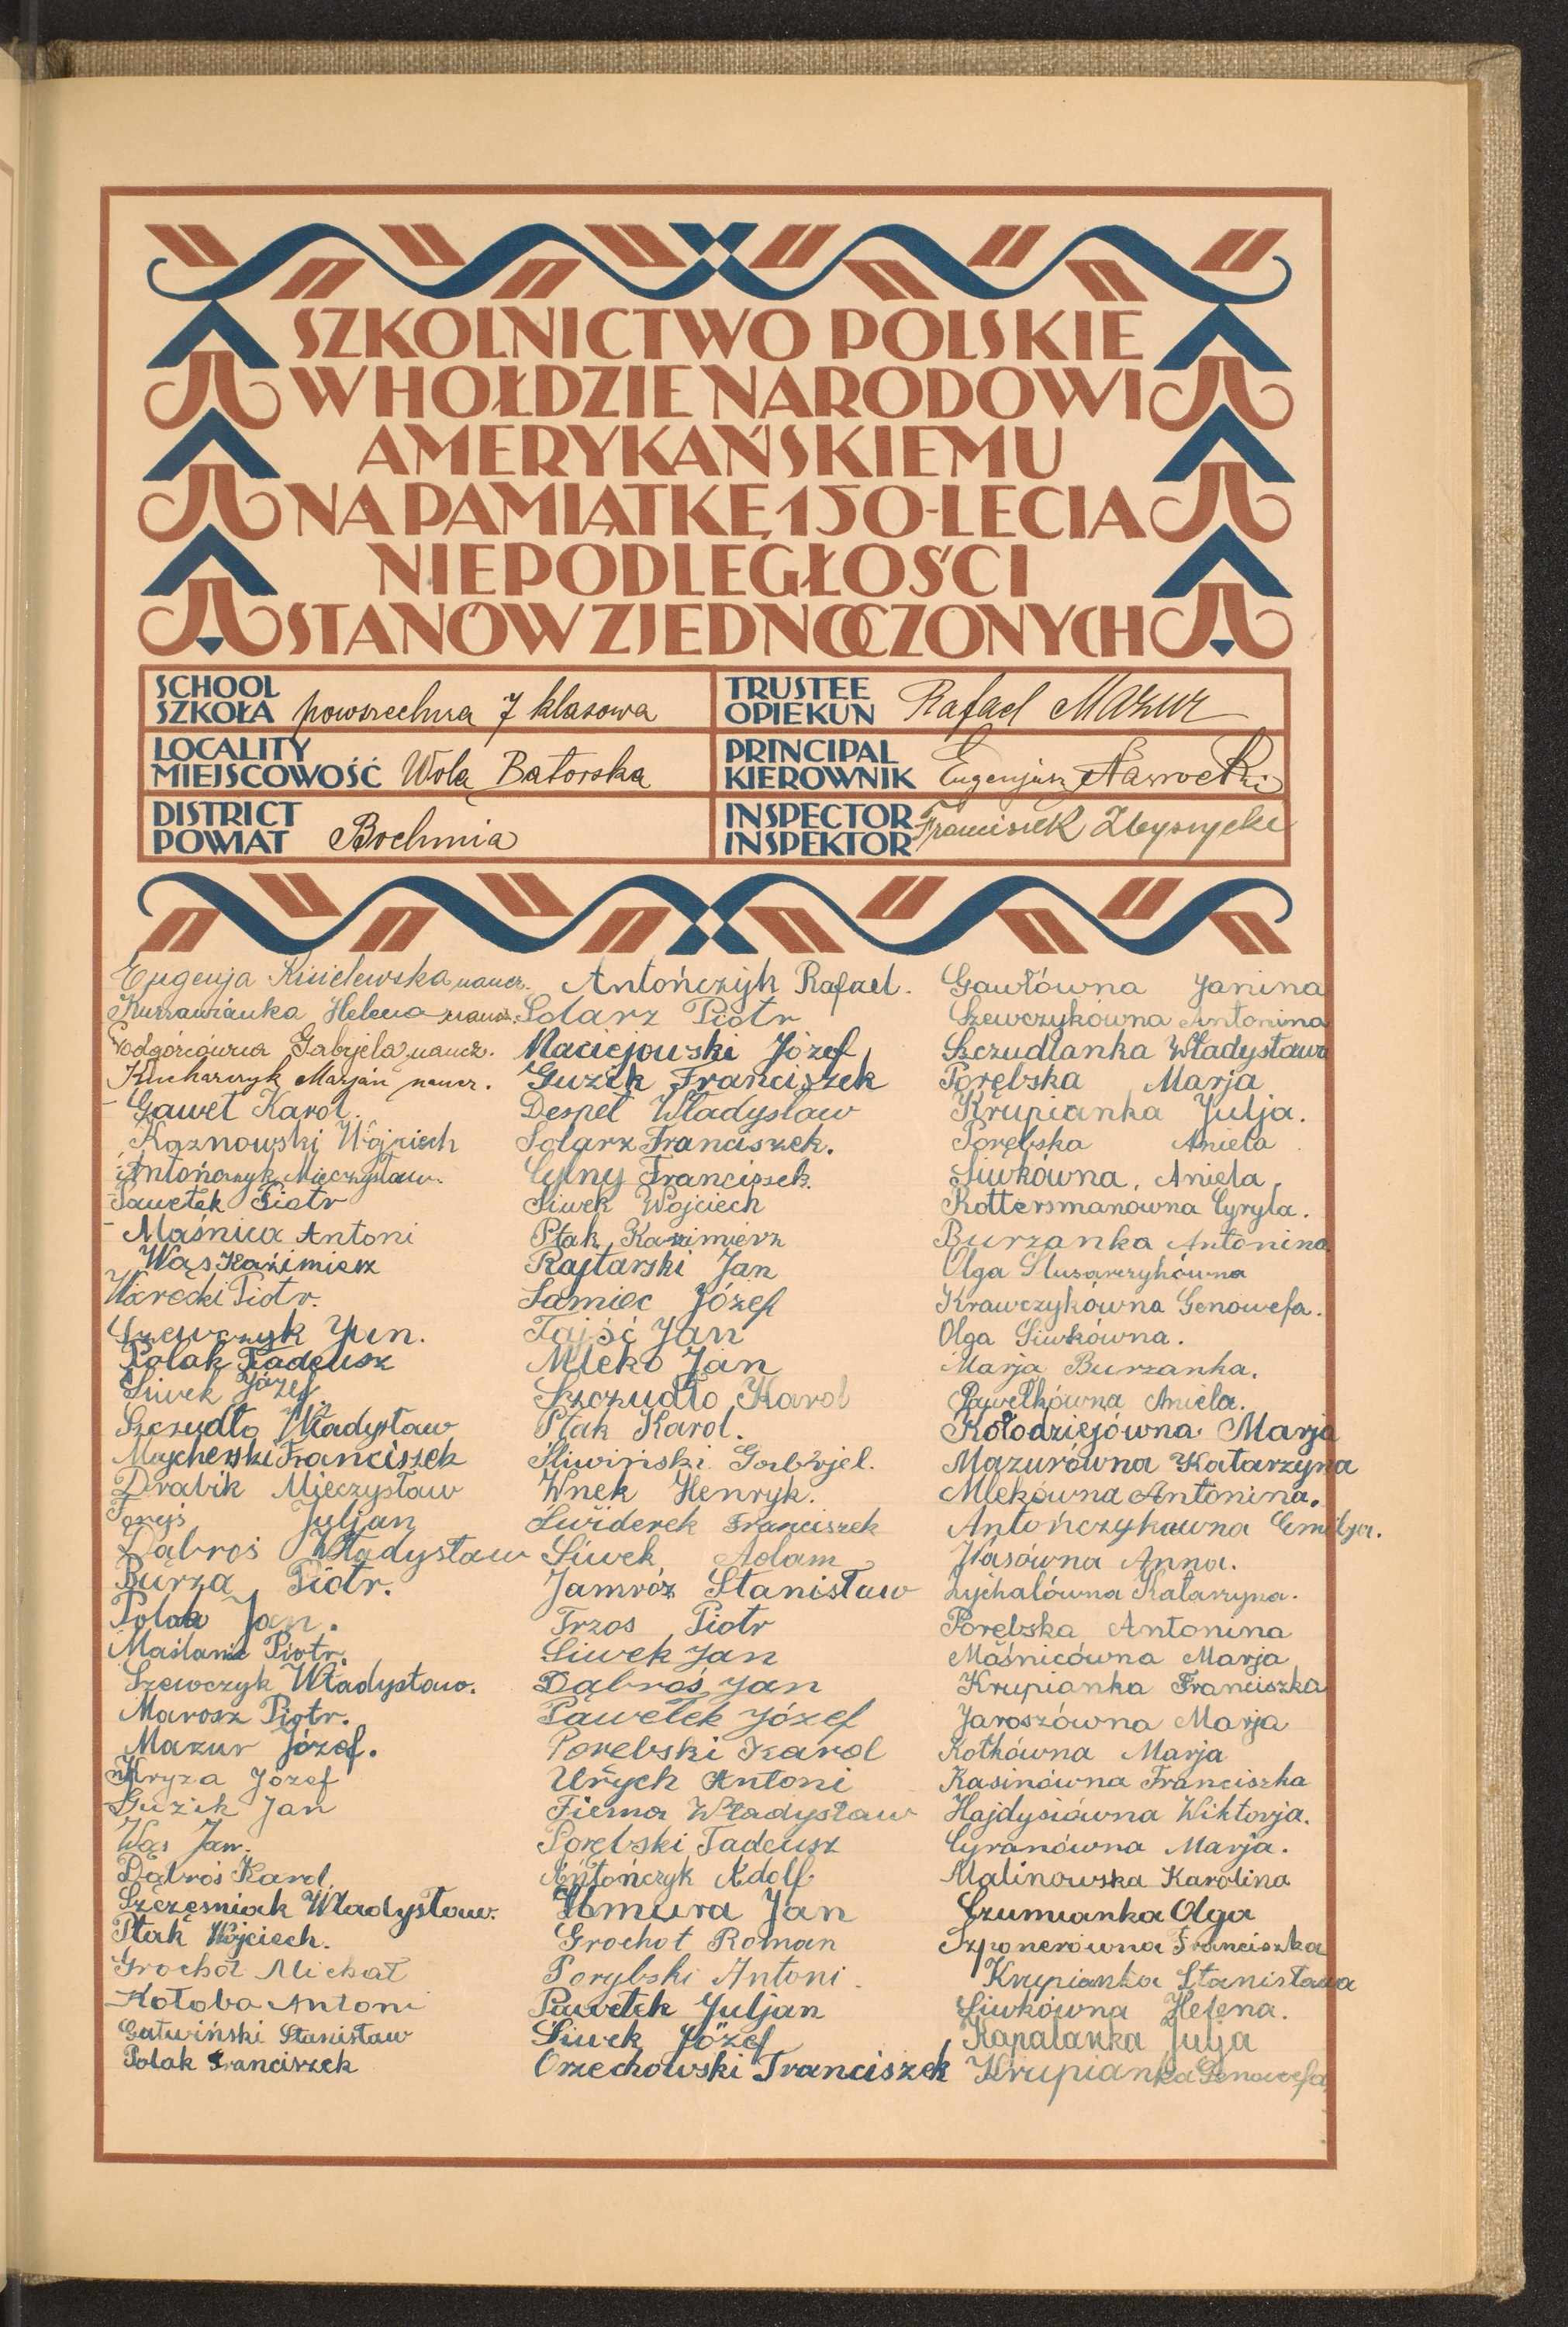 SZKOLNICTWO POLSKIE
W HOŁDZIE NARODOWI
AMERYKAŃSKIEMU
NA PAMIĄTKĘ 150-LECIA
NIEPODLEGŁOŚCI
STANÓW ZJEDNOCZONYCH
SCHOOL
SZKOŁA powszechna 7 klasowa
TRUSTEE
OPIEKUN Rafael Mazur
LOCALITY
MIEJSCOWOŚĆ Wola Batorska
PRINCIPAL
KIEROWNIK Eugenjusz Nawrocki
DISTRICT
POWIAT Bochnia
INSPECTOR
INSPEKTOR Franciszek
Eugenja Kisielewska naucz.
Helena naucz.
Podgórcówna Gabrjela naucz.
Kucharczyk Marjan naucz.
Gaweł Karol.
Kaznowski Wojciech
Antończyk Mieczysław.
Pawełek Piotr
Maśnica Antoni
Wąs Kazimierz
Piotr.
Szewczyk Jan.
Polak Tadeusz
Siwek Józef
Szczudło Władysław
Majcherski Franciszek
Drabik Mieczysław
Juljan
Dąbroś Władysław
Burza Piotr.
Polak Jan.
Maślanka Piotr.
Szewczyk Władysław.
Marosz Piotr.
Mazur Józef.
Kryza Józef
Guzik Jan
Wąs Jan.
Dąbroś Karol.
Szczęśniak Władysław.
Ptak Wojciech.
Grochół Michał
Kołoba Antoni
Gałwiński Stanisław
Polak Franciszek
Antończyk Rafael.
Solarz Piotr
Maciejowski Józef
Guzik Franciszek
Despet Władysław
Solarz Franciszek.
Cylny Franciszek.
Siwek Wojciech
Ptak Kazimierz
Rajtarski Jan
Samiec Józef
Tajść Jan
Mleko Jan
Szczudło Karol
Ptak Karol.
Śliwiński Gabrjel.
Wnek Henryk.
Świderek Franciszek
Siwek Adam
Jamróz Stanisław
Trzos Piotr
Siwek Jan
Dąbroś Jan
Pawełek Józef
Porębski Karol
Urych Antoni
Fiema Władysław
Porębski Tadeusz
Antończyk Adolf
Chmura Jan
Grochot Roman
Porybski Antoni.
Pawełek Juljan
Siwek Józef
Orzechowski Franciszek
Gawłówna Janina
Szewczykówna Antonina
Szczudlanka Władysława
Porębska Marja
Krupianka Julja.
Porębska Aniela
Siwkówna, Aniela,
Rottersmanowna Cyryla.
Burzanka Antonina.
Olga Slusarczykówna
Krawczykówna Genowefa.
Olga Siwkówna.
Marja Burzanka.
Pawełkówna Aniela.
Kołodziejówna Marja
Mazurówna Katarzyna
Mlekówna Antonina.
Antończykówna Emilja.
Wasówna Anna.
Lychalówna Katarzyna.
Porębska Antonina
Maśnicówna Marja
Krupianka Franciszka
Jaroszówna Marja
Kotkówna Marja
Kasinówna Franciszka
Hajdysiówna Wiktorja.
Cyranówna Marja.
Malinowska Karolina
Czumianka Olga
Szponerówna Franciszka
Krupianka Stanisława
Siwkówna Helena.
Kapalanka Julja
Krupianka Genowefa